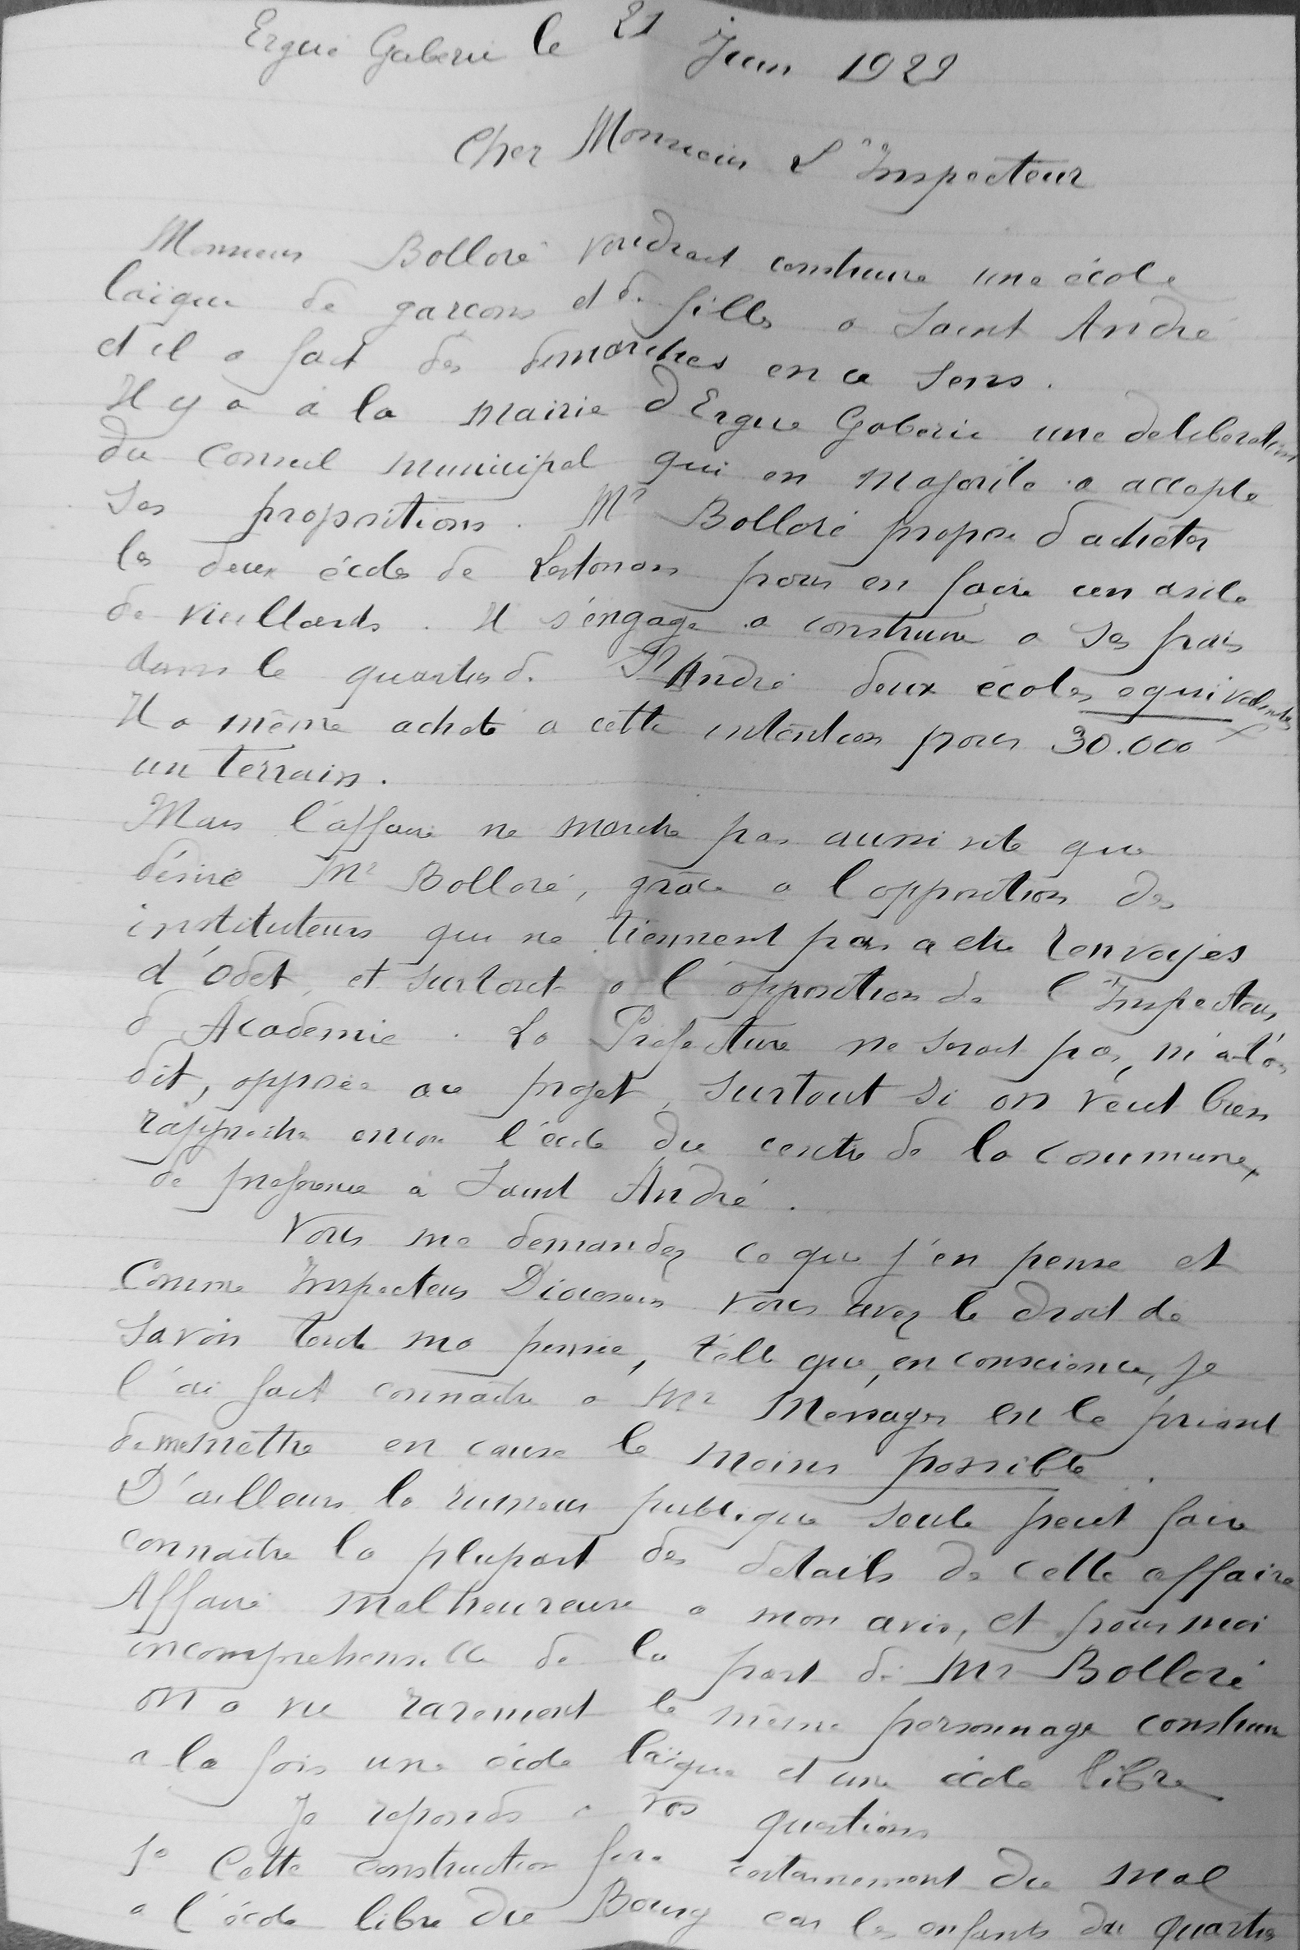 Ergué Gaberic le 21 Juin 1929
Cher Monsieur L'Inspecteur
Monsieur Bolloré voudrait construire une école
laïque de garçons et de filles a Saint André
et il a fait des demarches en ce sens.
Il y a à la mairie d'Ergue Gaberic une deliberation
du Conseil municipal qui en majorite a accepte
ses propositions. Mr Bolloré propose d'acheter
les deux écoles de Lestonan pour en faire un asile
de vieillards. Il s'engage a construire a ses frais
dans le quartier de St André deux écoles equivalentes
Il a même acheté a cette intention pour 30.000 f
un terrain.
Mais l'affaire ne marche pas aussi vite que
désire Mr Bolloré, grâce a l'opposition des
instituteurs qui ne tiennent pas a etre renvoyés
d'Odet, et surtout a l'opposition de l'Inspecteur
d'Academie. La Préfecture ne serait pas, m'a-t-on
dit, opposée au projet, surtout si on veut bien
rapprocher encore l'école du centre de la commune
de preference à Saint André.
Vous me demandez ce que j'en pense et
Comme Inspecteur Diocesain vous avez le droit de
savoir toute ma pensée, telle que, en conscience, je
l'ai fait connaitre a Mr Messager en le priant
de me mettre en cause le moins possible.
D'ailleurs la rumeur publique seule peut faire
connaitre la plupart des details de cette affaire
Affaire malheureuse a mon avis, et pour moi
incomprehensible de la part de Mr Bolloré
on a vu rarement le même personnage construire
a la fois une école laïque et une école libre
Je reponds a vos questions
1º Cette construction fera certainement du mal
a l'école libre du Bourg car les enfants du quartier